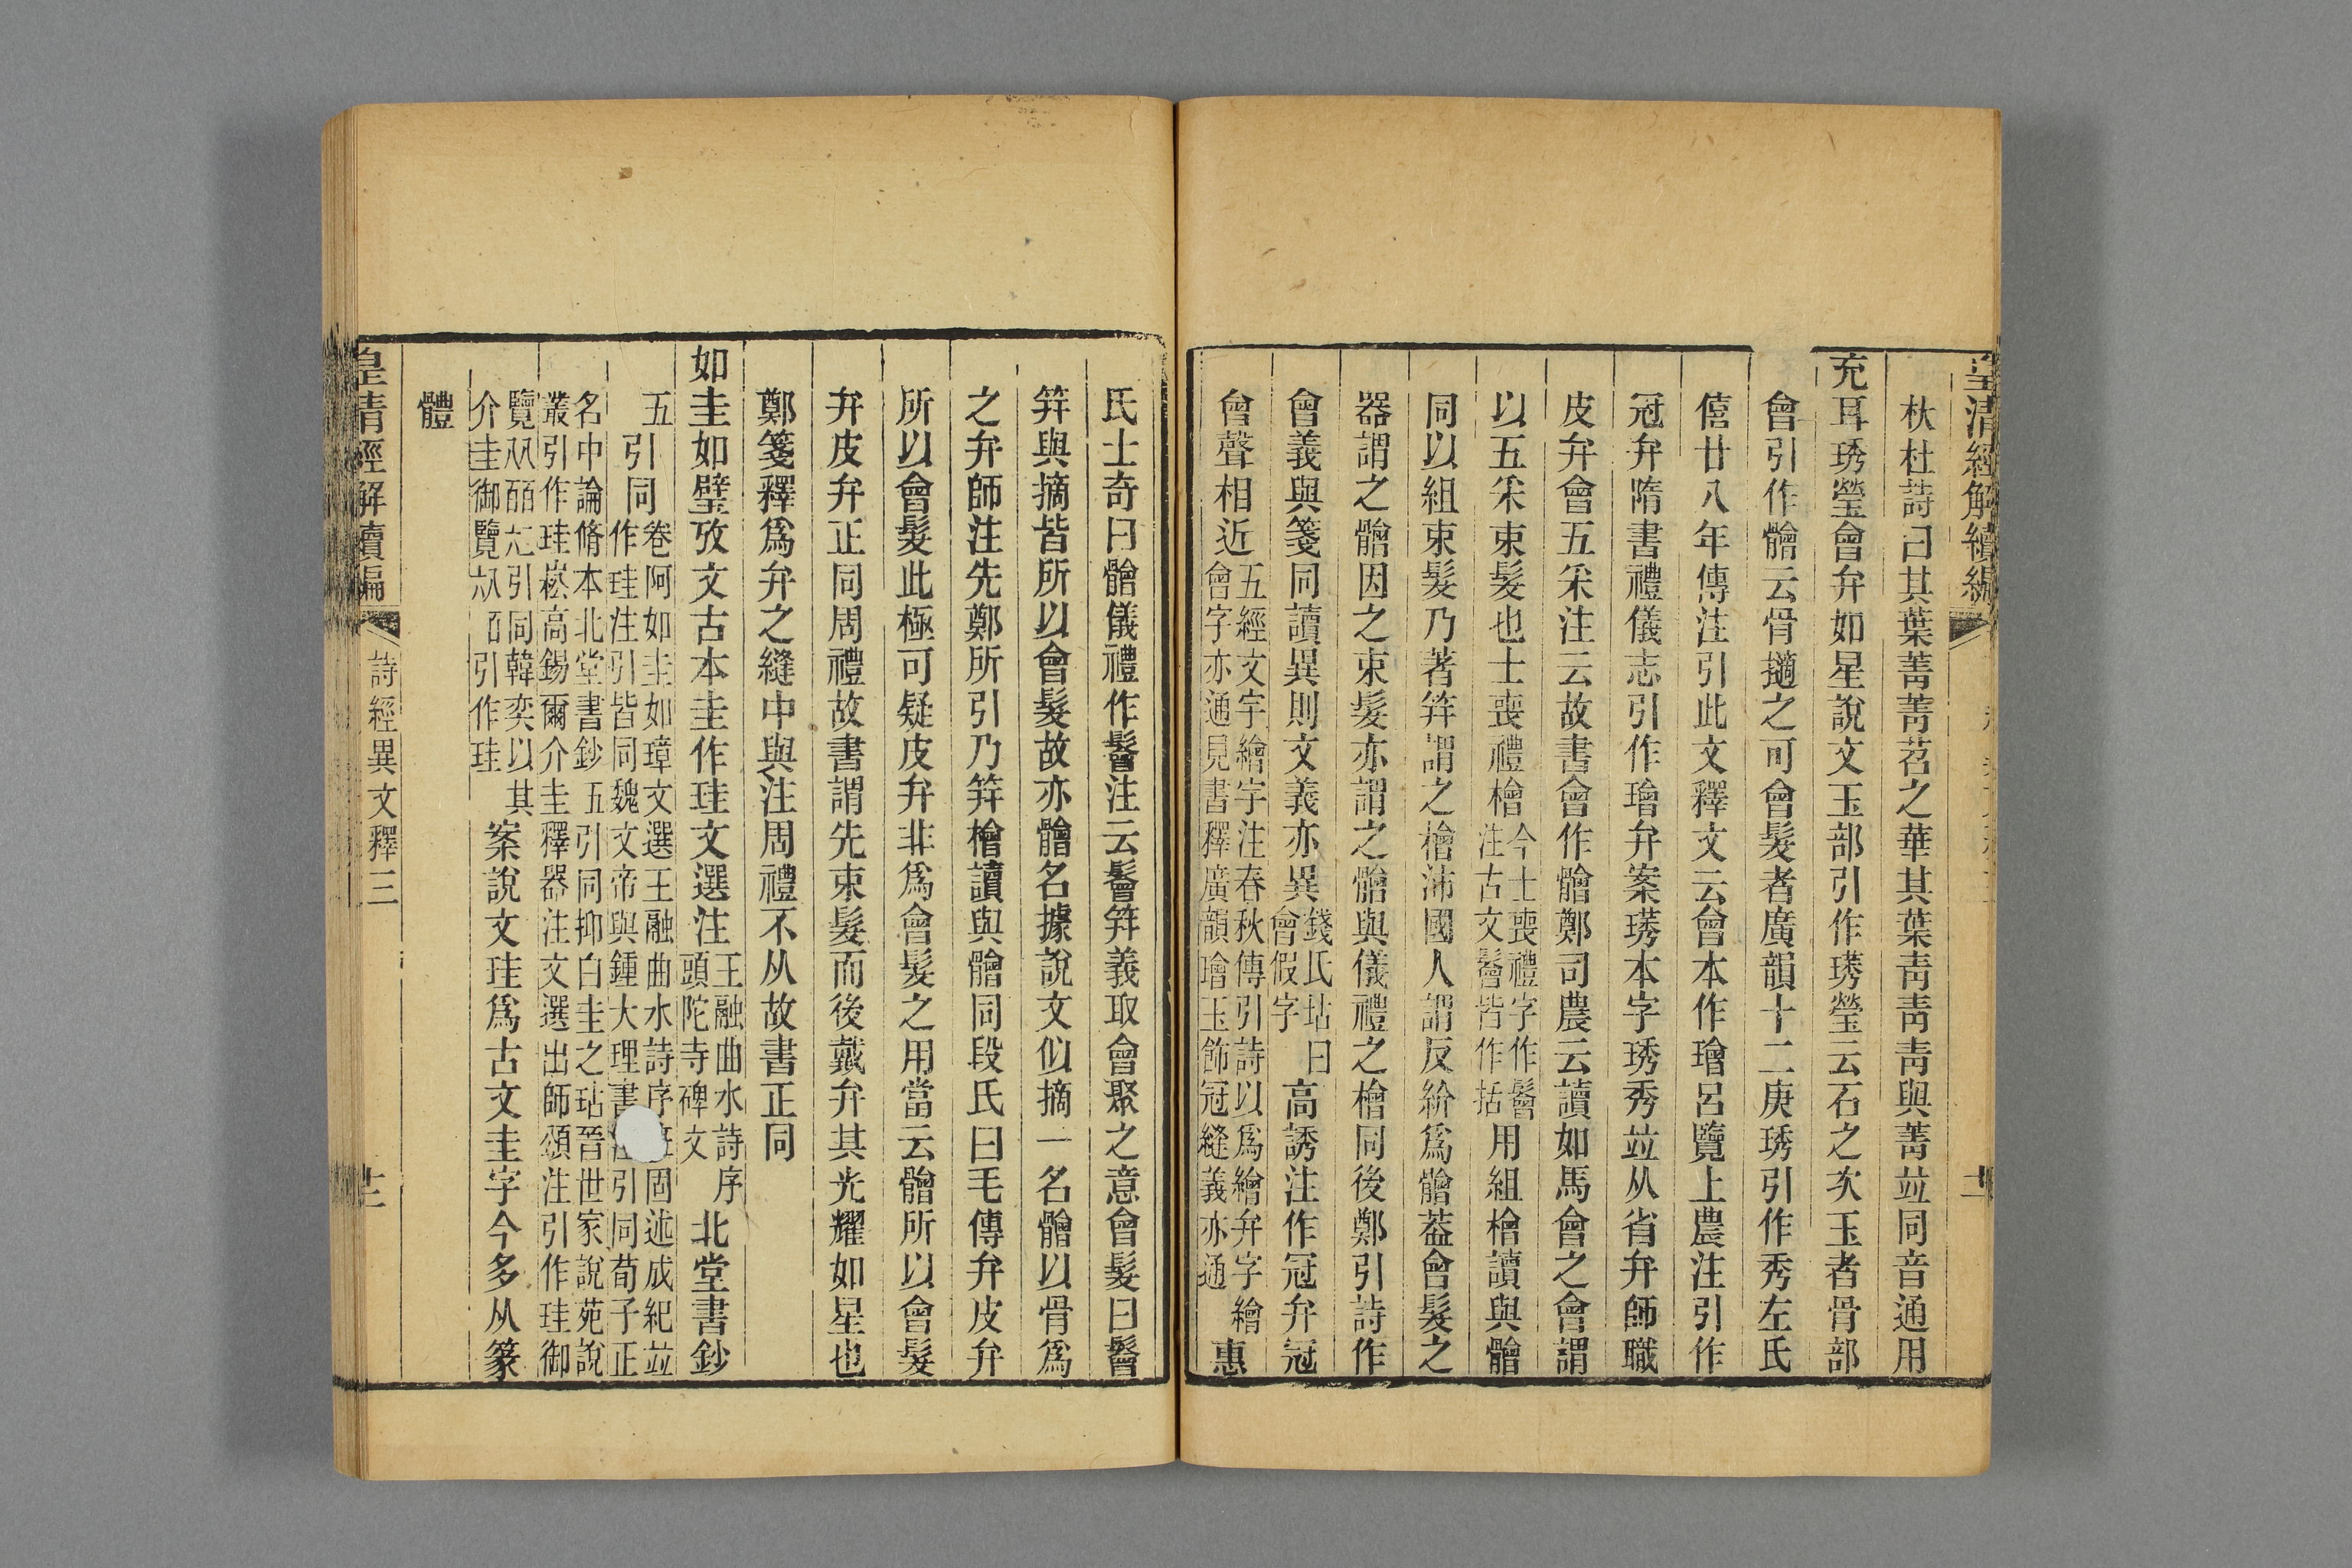 皇清經解續編
杕杜詩曰其葉菁菁苕之華其葉靑靑靑與菁竝同音通用
充耳琇瑩會弁如星說文玉部引作璓瑩云石之次玉者骨部
會引作䯤云骨擿之可會髮者廣韻十二庚琇引作秀左氏
僖廿八年傳注引此文釋文云會本作璯呂覽上農注引作
冠弁隋書禮儀志引作璯弁案璓本字琇秀竝从省弁師職
皮弁會五采注云故書會作䯤鄭司農云讀如馬會之會謂
以五采束髮也士喪禮檜今士喪禮字作鬠注古文鬠皆作括用組檜讀與䯤
同以組束髮乃著笄謂之檜沛國人謂反紒爲䯤葢會髮之
器謂之䯤因之束髮亦謂之䯤與儀禮之檜同後鄭引詩作
會義與箋同讀異則文義亦異錢氏坫曰會假字高誘注作冠弁冠
會聲相近五經文字繪字注春秋傳引詩以爲繪弁字繪會字亦通見書釋廣韻璯玉飾冠縫義亦通惠
氏士奇曰䯤儀禮作鬠注云鬠笄義取會聚之意會髮曰鬠
笄與摘皆所以會髮故亦䯤名據說文似摘一名䯤以骨爲
之弁師注先鄭所引乃笄檜讀與䯤同段氏曰毛傳弁皮弁
所以會髮此極可疑皮弁非爲會髮之用當云䯤所以會髮
弁皮弁正同周禮故書謂先束髮而後戴弁其光耀如星也
鄭箋釋爲弁之縫中與注周禮不从故書正同
如圭如璧攷文古本圭作珪文選注王融曲水詩序頭陀寺碑文北堂書鈔
五引同卷阿如圭如璋文選王融曲水詩序班固述成紀竝作珪注引皆同魏文帝與鍾大理書引同荀子正
名中論脩本北堂書鈔五引同抑白圭之玷晉世家說苑說叢引作珪崧高錫爾介圭釋器注文選出師頌注引作珪御
覽引同韓奕以其介圭御覽引作珪案說文珪爲古文圭字今多从篆
體
皇清經解續編
詩經異文釋三